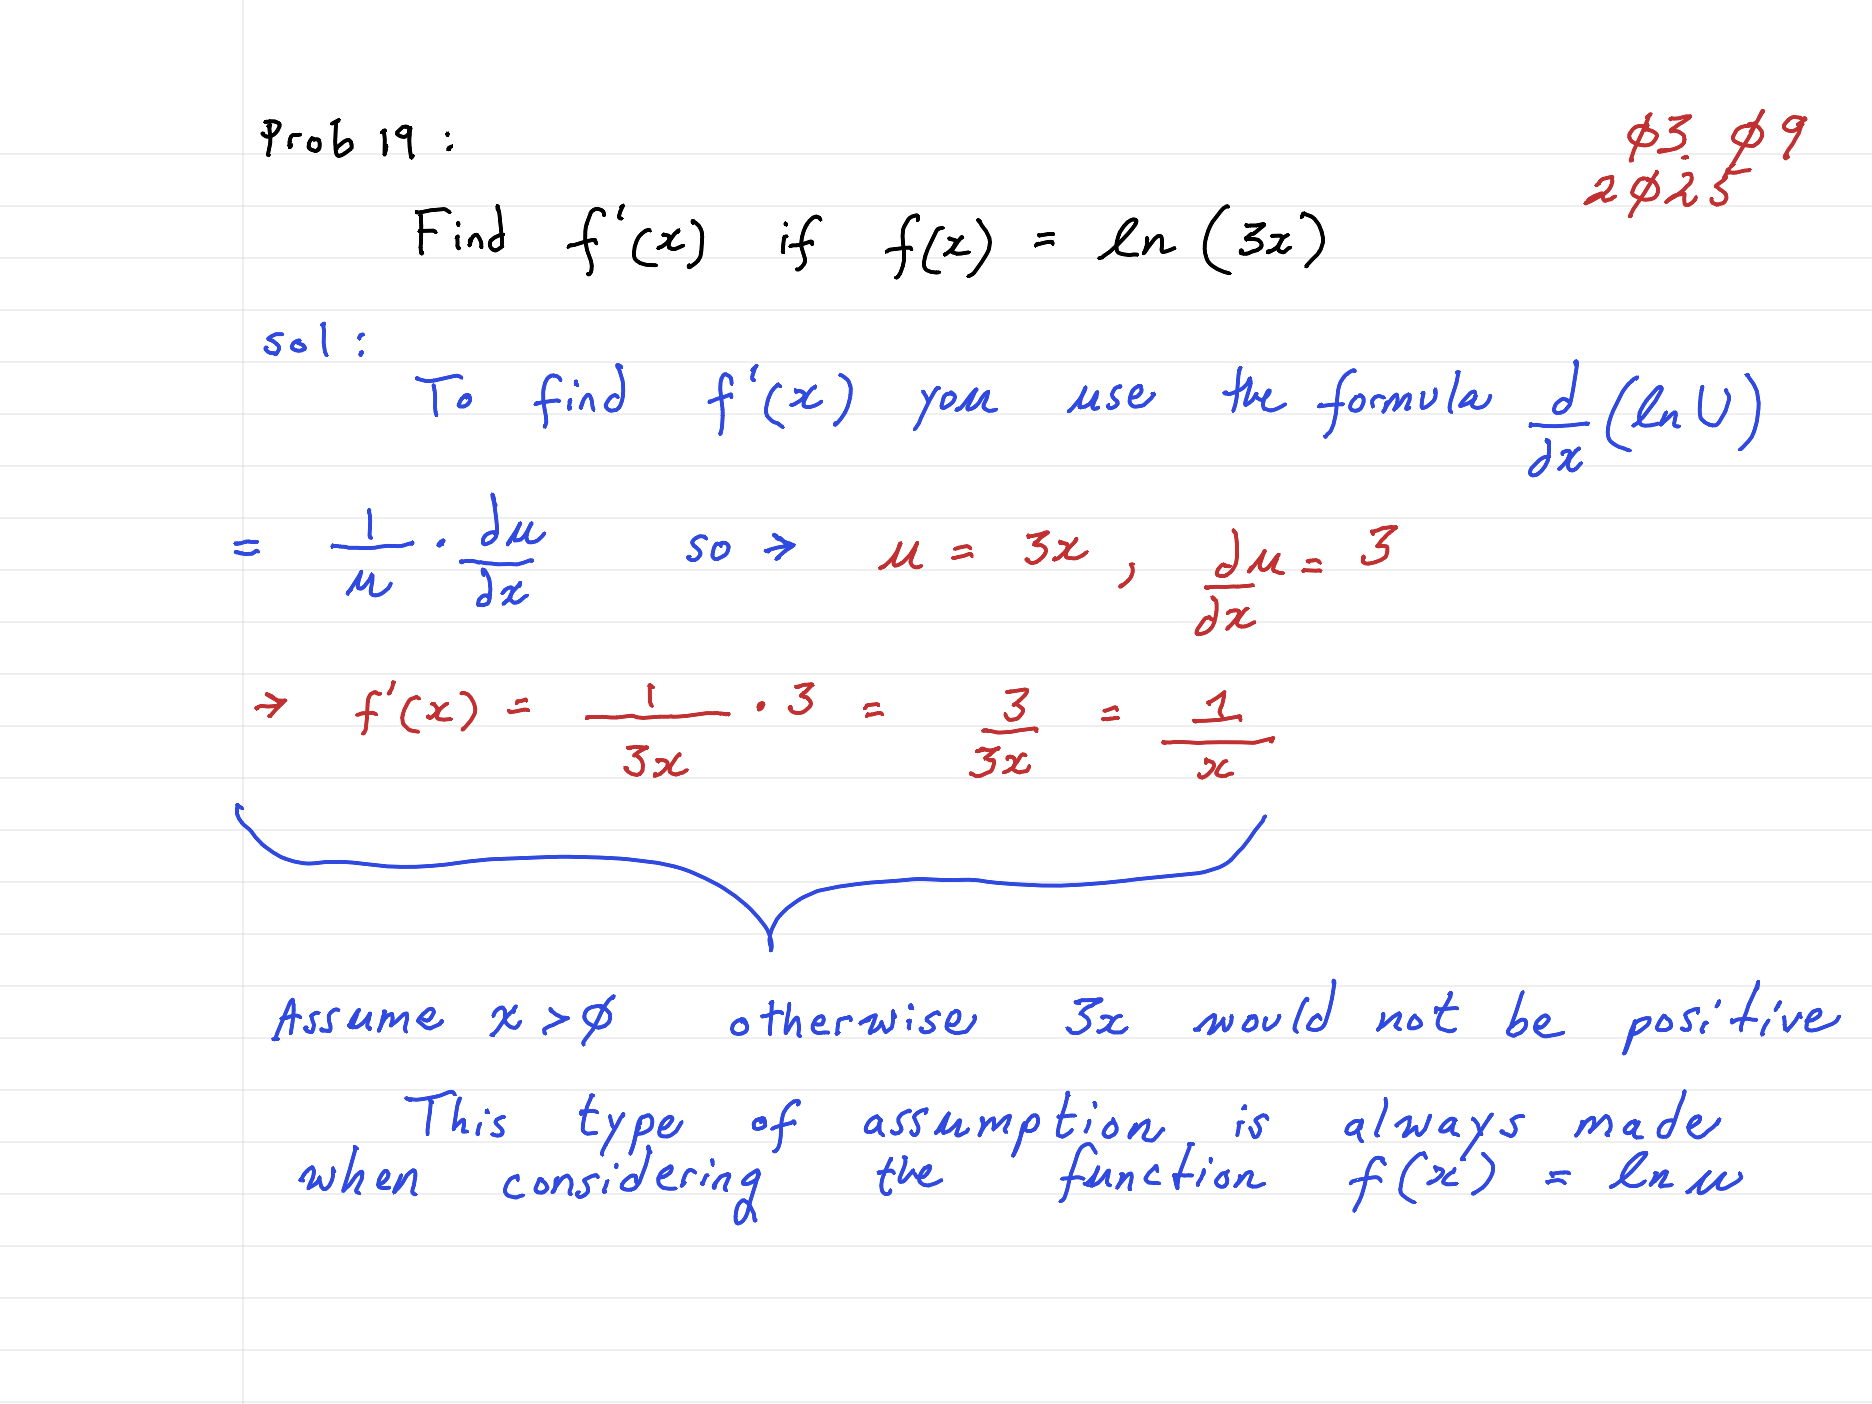 Prob 19:
φ3 φ9
2φ25
Find f'(x) if f(x) = ln (3x)
sol:
To find f'(x) you use the formula d/dx (ln U)
= 1/u · du/dx so → u = 3x, du/dx = 3
→ f'(x) = 1/3x · 3 = 3/3x = 1/x
Assume x > φ otherwise 3x would not be positive
This type of assumption is always made
when considering the function f(x) = ln u